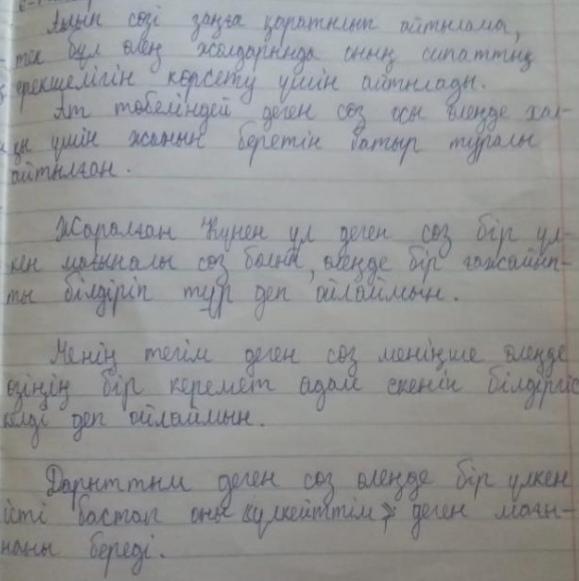 Ақын сөзі заңға қаратылып айтылама,
тек бұл өлең жолдарында оның сипаттық
ерекшелігін көрсету үшін айтылады.
Ат төбеліндей деген сөз осы өлеңде хал-
қы үшін жанын беретін батыр туралы
айтылған.
Жаралған Күнен ұл деген сөз бір үл-
кен мағыналы сөз болып, өлеңде бір ғажайып-
ты білдіріп тұр деп ойлаймын.
Менің тегім деген сөз меніңше өлеңде
өзінің бір керемет адам екенін білдіргіс
келді деп ойлаймын.
Дарыттым деген сөз өлеңде бір үлкен
істі бастап оны үлкейттім деген мағы-
наны береді.